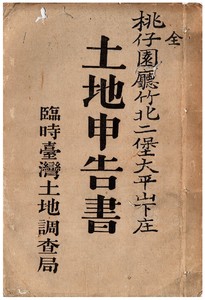 全
桃仔園廳竹北二堡大平山下庄
土地申告書
臨時臺灣土地調查局